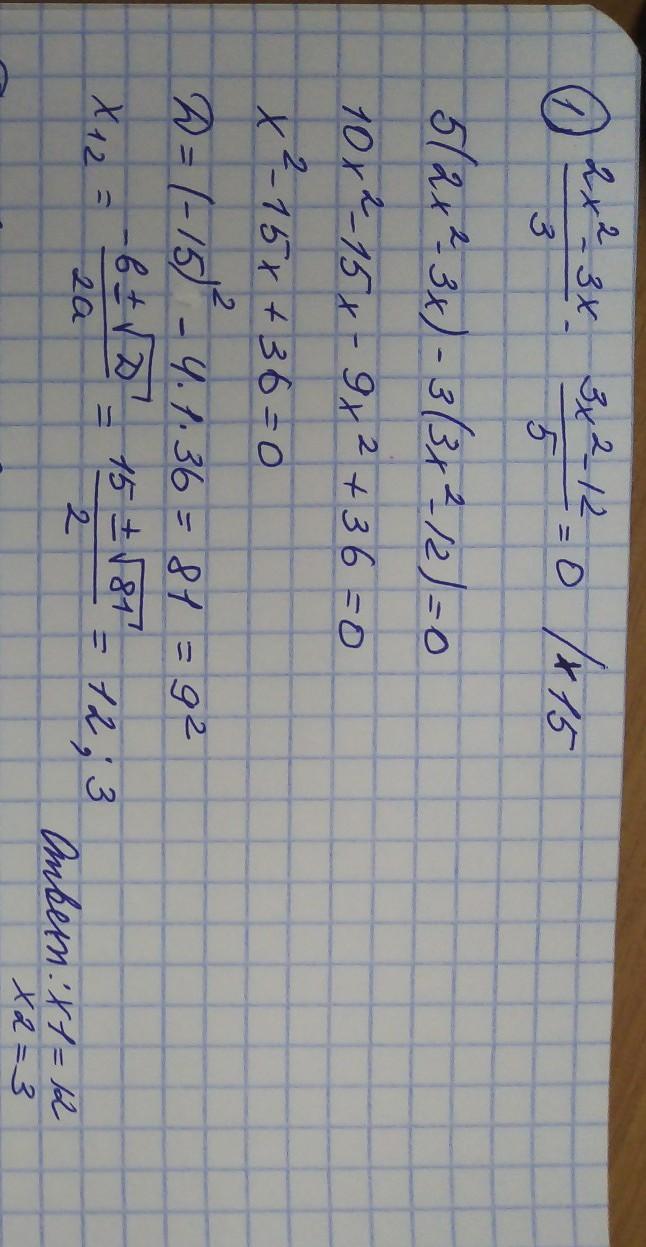 ① (2x² - 3x)/3 - (3x² - 12)/5 = 0 /x15
5(2x² - 3x) - 3(3x² - 12) = 0
10x² - 15x - 9x² + 36 = 0
x² - 15x + 36 = 0
D = (-15)² - 4·1·36 = 81 = 9²
x12 = (-b ± √D)/2a = (15 ± √81)/2 = 12; 3
Ответ: x1 = 12
x2 = 3